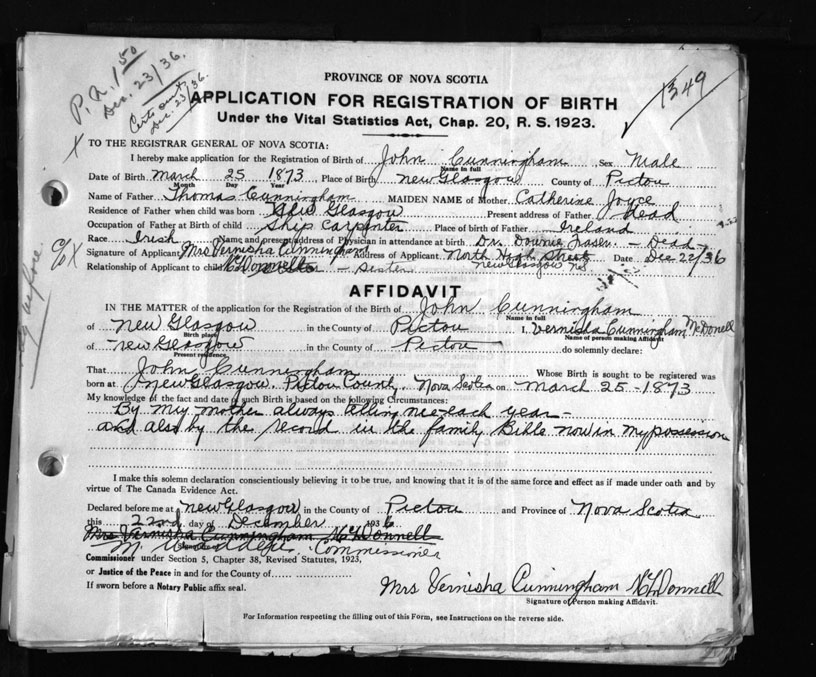 P.A. 1.50
Dec. 23/36.
Dec. 23/36.
1349
PROVINCE OF NOVA SCOTIA
APPLICATION FOR REGISTRATION OF BIRTH
Under the Vital Statistics Act, Chap. 20, R. S. 1923.
X TO THE REGISTRAR GENERAL OF NOVA SCOTIA:
I hereby make application for the Registration of Birth of John Cunningham Sex Male
Name in full
Date of Birth March 25 1873 Place of Birth New Glasgow County of Pictou
Month Day Year
Name of Father Thomas Cunningham MAIDEN NAME of Mother Catherine Joyce
Residence of Father when child was born New Glasgow Present address of Father Dead
Occupation of Father at Birth of child Ship Carpenter Place of birth of Father Ireland
Race Irish Name and present address of Physician in attendance at birth Dr. Downie Fraser - Dead
Signature of Applicant Mrs Vernisha Cunningham Address of Applicant North High Street Date Dec 22/36
McDonnell New Glasgow NS
Relationship of Applicant to child - Sister
AFFIDAVIT
IN THE MATTER of the application for the Registration of the Birth of John Cunningham
Name in full
of New Glasgow in the County of Pictou I, Vernisha Cunningham McDonell
Birth place Name of person making Affidavit
of New Glasgow in the County of Pictou do solemnly declare:
Present residence
That John Cunningham Whose Birth is sought to be registered was
born at New Glasgow, Pictou County, Nova Scotia on March 25 - 1873
My knowledge of the fact and date of such Birth is based on the following Circumstances:
By my mother always telling me each year -
and also by the record in the family Bible now in my possession
I make this solemn declaration conscientiously believing it to be true, and knowing that it is of the same force and effect as if made under oath and by
virtue of The Canada Evidence Act.
Declared before me at New Glasgow in the County of Pictou and Province of Nova Scotia
this 22nd day of December 1936
Mrs Vernisha Cunningham McDonnell
Commissioner
Commissioner under Section 5, Chapter 38, Revised Statutes, 1923,
or Justice of the Peace in and for the County of
If sworn before a Notary Public affix seal.
Mrs Vernisha Cunningham McDonnell
Signature of Person making Affidavit.
For Information respecting the filling out of this Form, see Instructions on the reverse side.